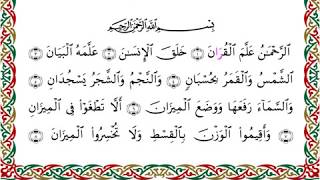 بِسْمِ ٱللَّهِ ٱلرَّحْمَٰنِ ٱلرَّحِيمِ
ٱلرَّحْمَٰنُ عَلَّمَ ٱلْقُرْءَانَ خَلَقَ ٱلْإِنسَٰنَ عَلَّمَهُ ٱلْبَيَانَ
ٱلشَّمْسُ وَٱلْقَمَرُ بِحُسْبَانٍ وَٱلنَّجْمُ وَٱلشَّجَرُ يَسْجُدَانِ
وَٱلسَّمَآءَ رَفَعَهَا وَوَضَعَ ٱلْمِيزَانَ أَلَّا تَطْغَوْا۟ فِى ٱلْمِيزَانِ
وَأَقِيمُوا۟ ٱلْوَزْنَ بِٱلْقِسْطِ وَلَا تُخْسِرُوا۟ ٱلْمِيزَانَ